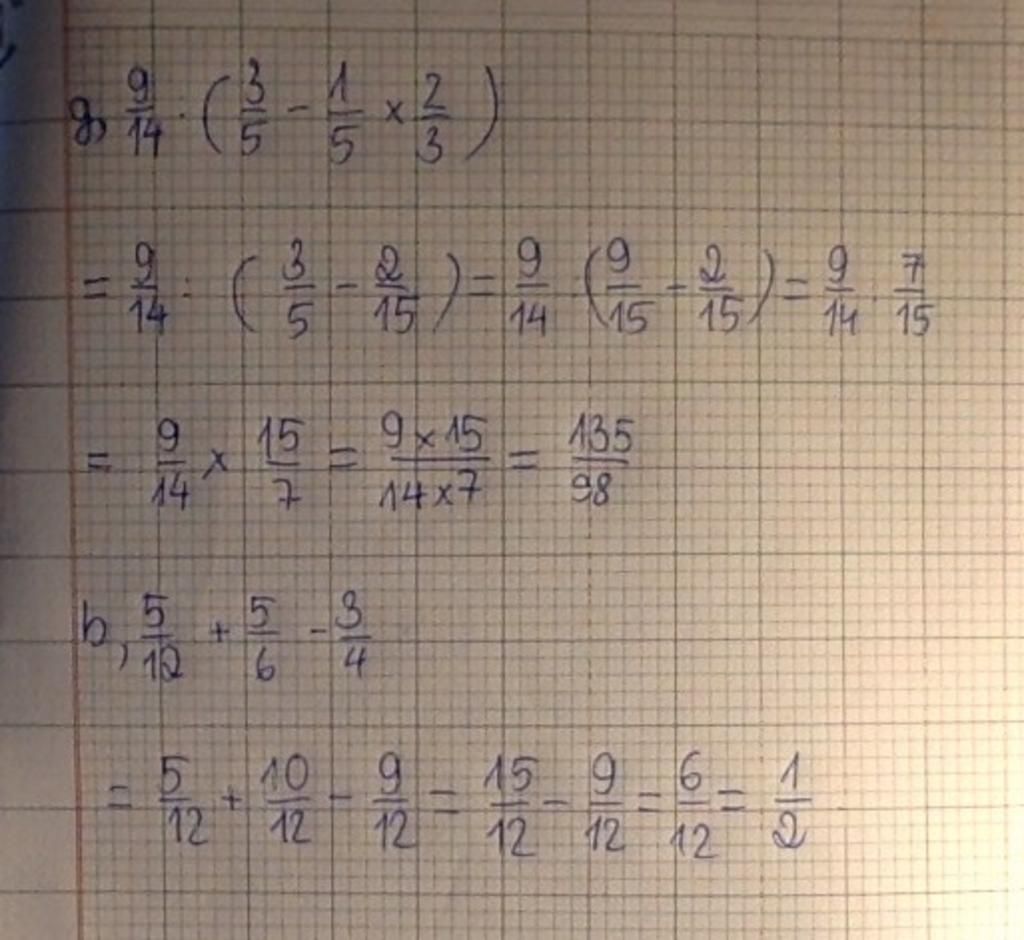 a, 9/14 : ( 3/5 - 1/5 × 2/3 )
= 9/14 : ( 3/5 - 2/15 ) = 9/14 : ( 9/15 - 2/15 ) = 9/14 : 7/15
= 9/14 × 15/7 = 9 × 15/14 × 7 = 135/98
b, 5/12 + 5/6 - 3/4
= 5/12 + 10/12 - 9/12 = 15/12 - 9/12 = 6/12 = 1/2